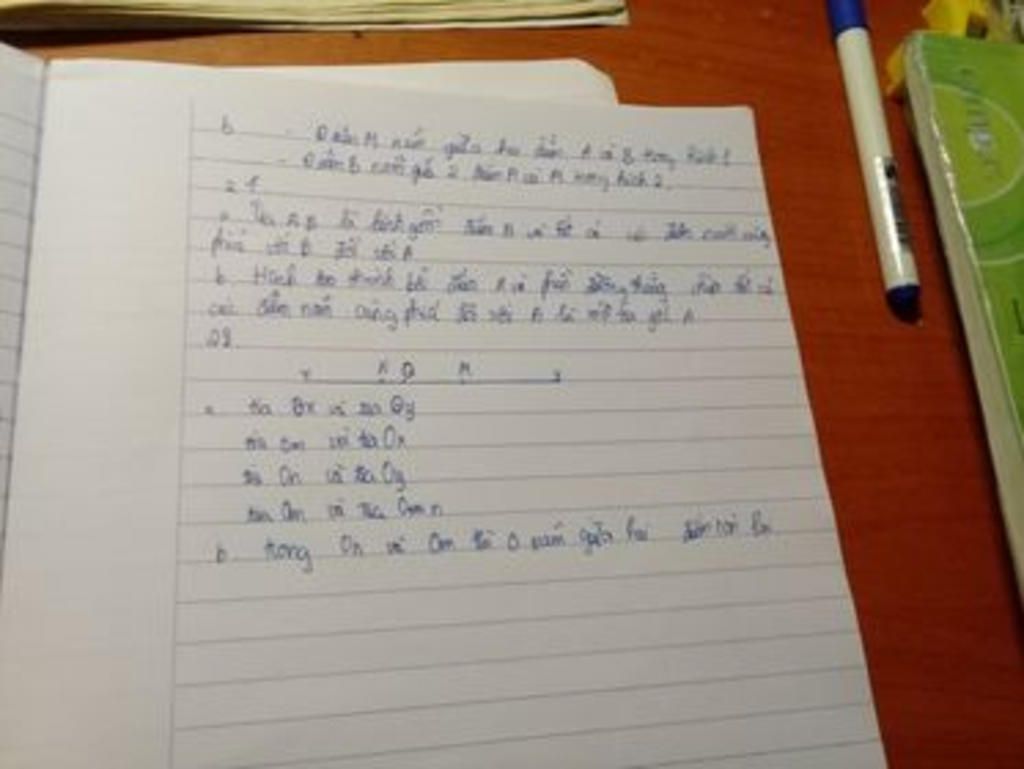 b. - Điểm M nằm giữa hai điểm A và B trong hình 1
- Điểm B nằm giữa 2 điểm A và M trong hình 2.
a. Tia AB là hình gồm điểm và tất cả các điểm nằm cùng
phía với B đối với A
b. Hình tạo thành bởi điểm A và phần đường thẳng chứa tất cả
các điểm nằm cùng phía đối với A là một tia gốc A
N O M
a. tia Ox và tia Oy
tia Om và tia Ox
tia On và tia Oy
tia Om và tia
b. trong On và Om thì O nằm giữa hai điểm còn lại